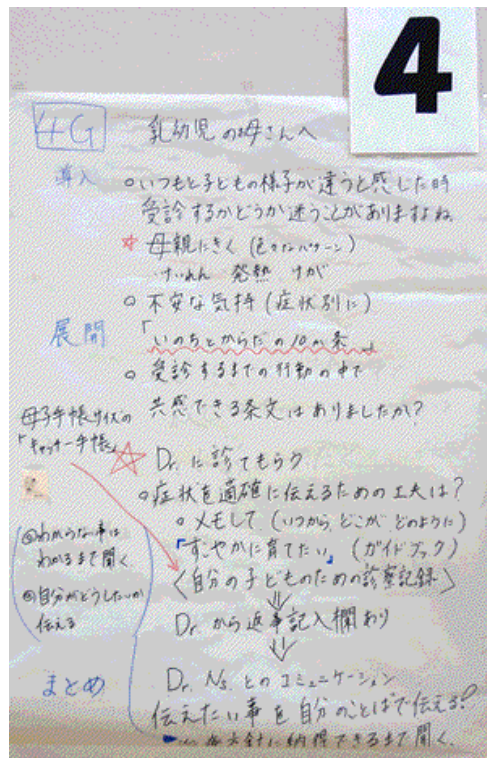 4
4G 乳幼児のお母さんへ
導入 ○いつもと子どもの様子が違うと感じた時
受診するかどうか迷うことがありますよね
☆ 母親にきく (色々なパターン)
けいれん 発熱 けが
○ 不安な気持 (症状別に)
展開 「いのちとからだの10か条」
○ 受診するまでの行動の中で
共感できる条文はありましたか?
母子手帳サイズの
「キャッチー手帳」
☆ Dr. に診てもらう
○症状を適確に伝えるための工夫は?
○メモして (いつから、どこが、どのように)
「すこやかに育てたい」 (ガイドブック)
〈自分の子どものための診察記録〉
⇓
Dr. から返事記入欄あり
⇓
◎わからない事は
わかるまで聞く
◎自分がどうしたいか
伝える
まとめ Dr. Ns. とのコミュニケーション
伝えたい事を自分のことばで伝える!
方針に納得できるまで聞く。